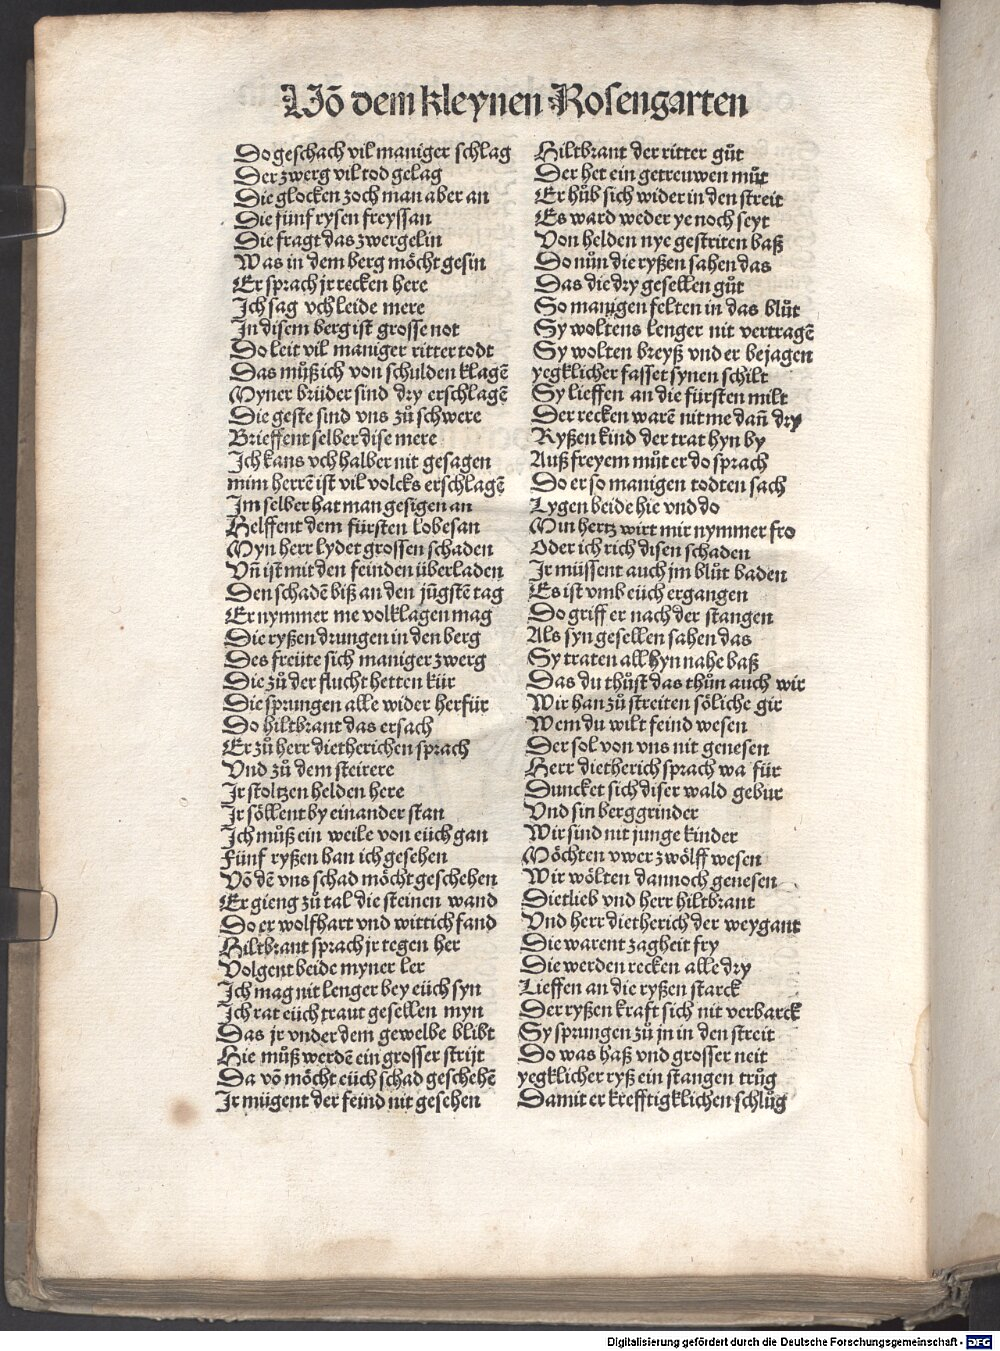 Võ dem kleynen Rosengarten
Do geschach vil maniger schlag
Der zwerg vil tod gelag
Die glocken zoch man aber an
Die fünf rysen freyssan
Die fragt das zwergelin
Was in dem berg möcht gesin
Er sprach jr recken here
Jch sag vch leide mere
Jn disem berg ist grosse not
Do leit vil maniger ritter todt
Das můß ich von schulden klagẽ
Myner brüder sind dry erschlagẽ
Die geste sind vns zů schwere
Brieffent selber dise mere
Jch kans vch halber nit gesagen
mim herrẽ ist vil volcks erschlagẽ
Jm selber hat man gesigen an
Helffent dem fürsten lobesan
Myn herr lydet grossen schaden
Vñ ist mit den feinden überladen
Den schadẽ biß an den jũgstẽ tag
Er nymmer me volklagen mag
Die ryßen drungen in den berg
Des freüte sich maniger zwerg
Die zů der flucht hetten kür
Die sprungen alle wider herfür
Do hiltbrant das ersach
Er zů herr dietherichen sprach
Vnd zů dem steirere
Jr stoltzen helden here
Jr söllent by einander stan
Jch můß ein weile von eüch gan
Fünf ryßen han ich gesehen
Võ dẽ vns schad möcht geschehen
Er gieng zů tal die steinen wand
Do er wolfhart vnd wittich fand
Hiltbrant sprach jr tegen her
Volgent beide myner ler
Jch mag nit lenger bey eüch syn
Jch rat eüch traut gesellen myn
Das jr vnder dem gewelbe blibt
Hie můß werdẽ ein grosser strijt
Da võ möcht eüch schad geschehẽ
Jr mügent der feind nit gesehen
Hiltbrant der ritter gůt
Der het ein getreuwen můt
Er hůb sich wider in den streit
Es ward weder ye noch seyt
Von helden nye gestriten baß
Do nůn die ryßen sahen das
Das die dry gesellen gůt
So manigen felten in das blůt
Sy woltens lenger nit vertragẽ
Sy wolten breyß vnd er bejagen
yegklicher fasset synen schilt
Sy lieffen an die fürsten milt
Der recken warẽ nit me dañ dry
Ryßen kind der trat hyn by
Auß freyem můt er do sprach
Do er so manigen todten sach
Lygen beide hie vnd do
Min hertz wirt mir nymmer fro
Oder ich rich disen schaden
Jr müssent auch jm blůt baden
Es ist vmb eüch ergangen
Do griff er nach der stangen
Als syn gesellen sahen das
Sy traten all hyn nahe baß
Das du thůst das thůn auch wir
Wir han zů streiten söliche gir
Wem du wilt feind wesen
Der sol von vns nit genesen
Herr dietherich sprach wa für
Duncket sich diser wald gebur
Vnd sin berggrinder
Wir sind nit junge kinder
Möchten vwer zwölff wesen
Wir wölten dannoch genesen
Dietlieb vnd herr hiltbrant
Vnd herr dietherich der weygant
Die warent zagheit fry
Die werden recken alle dry
Lieffen an die ryßen starck
Der ryßen kraft sich nit verbarck
Sy sprungen zů jn in den streit
Do was haß vnd grosser neit
yegklicher ryß ein stangen trůg
Damit er krefftigklichen schlůg
Digitalisierung gefördert durch die Deutsche Forschungsgemeinschaft - DFG